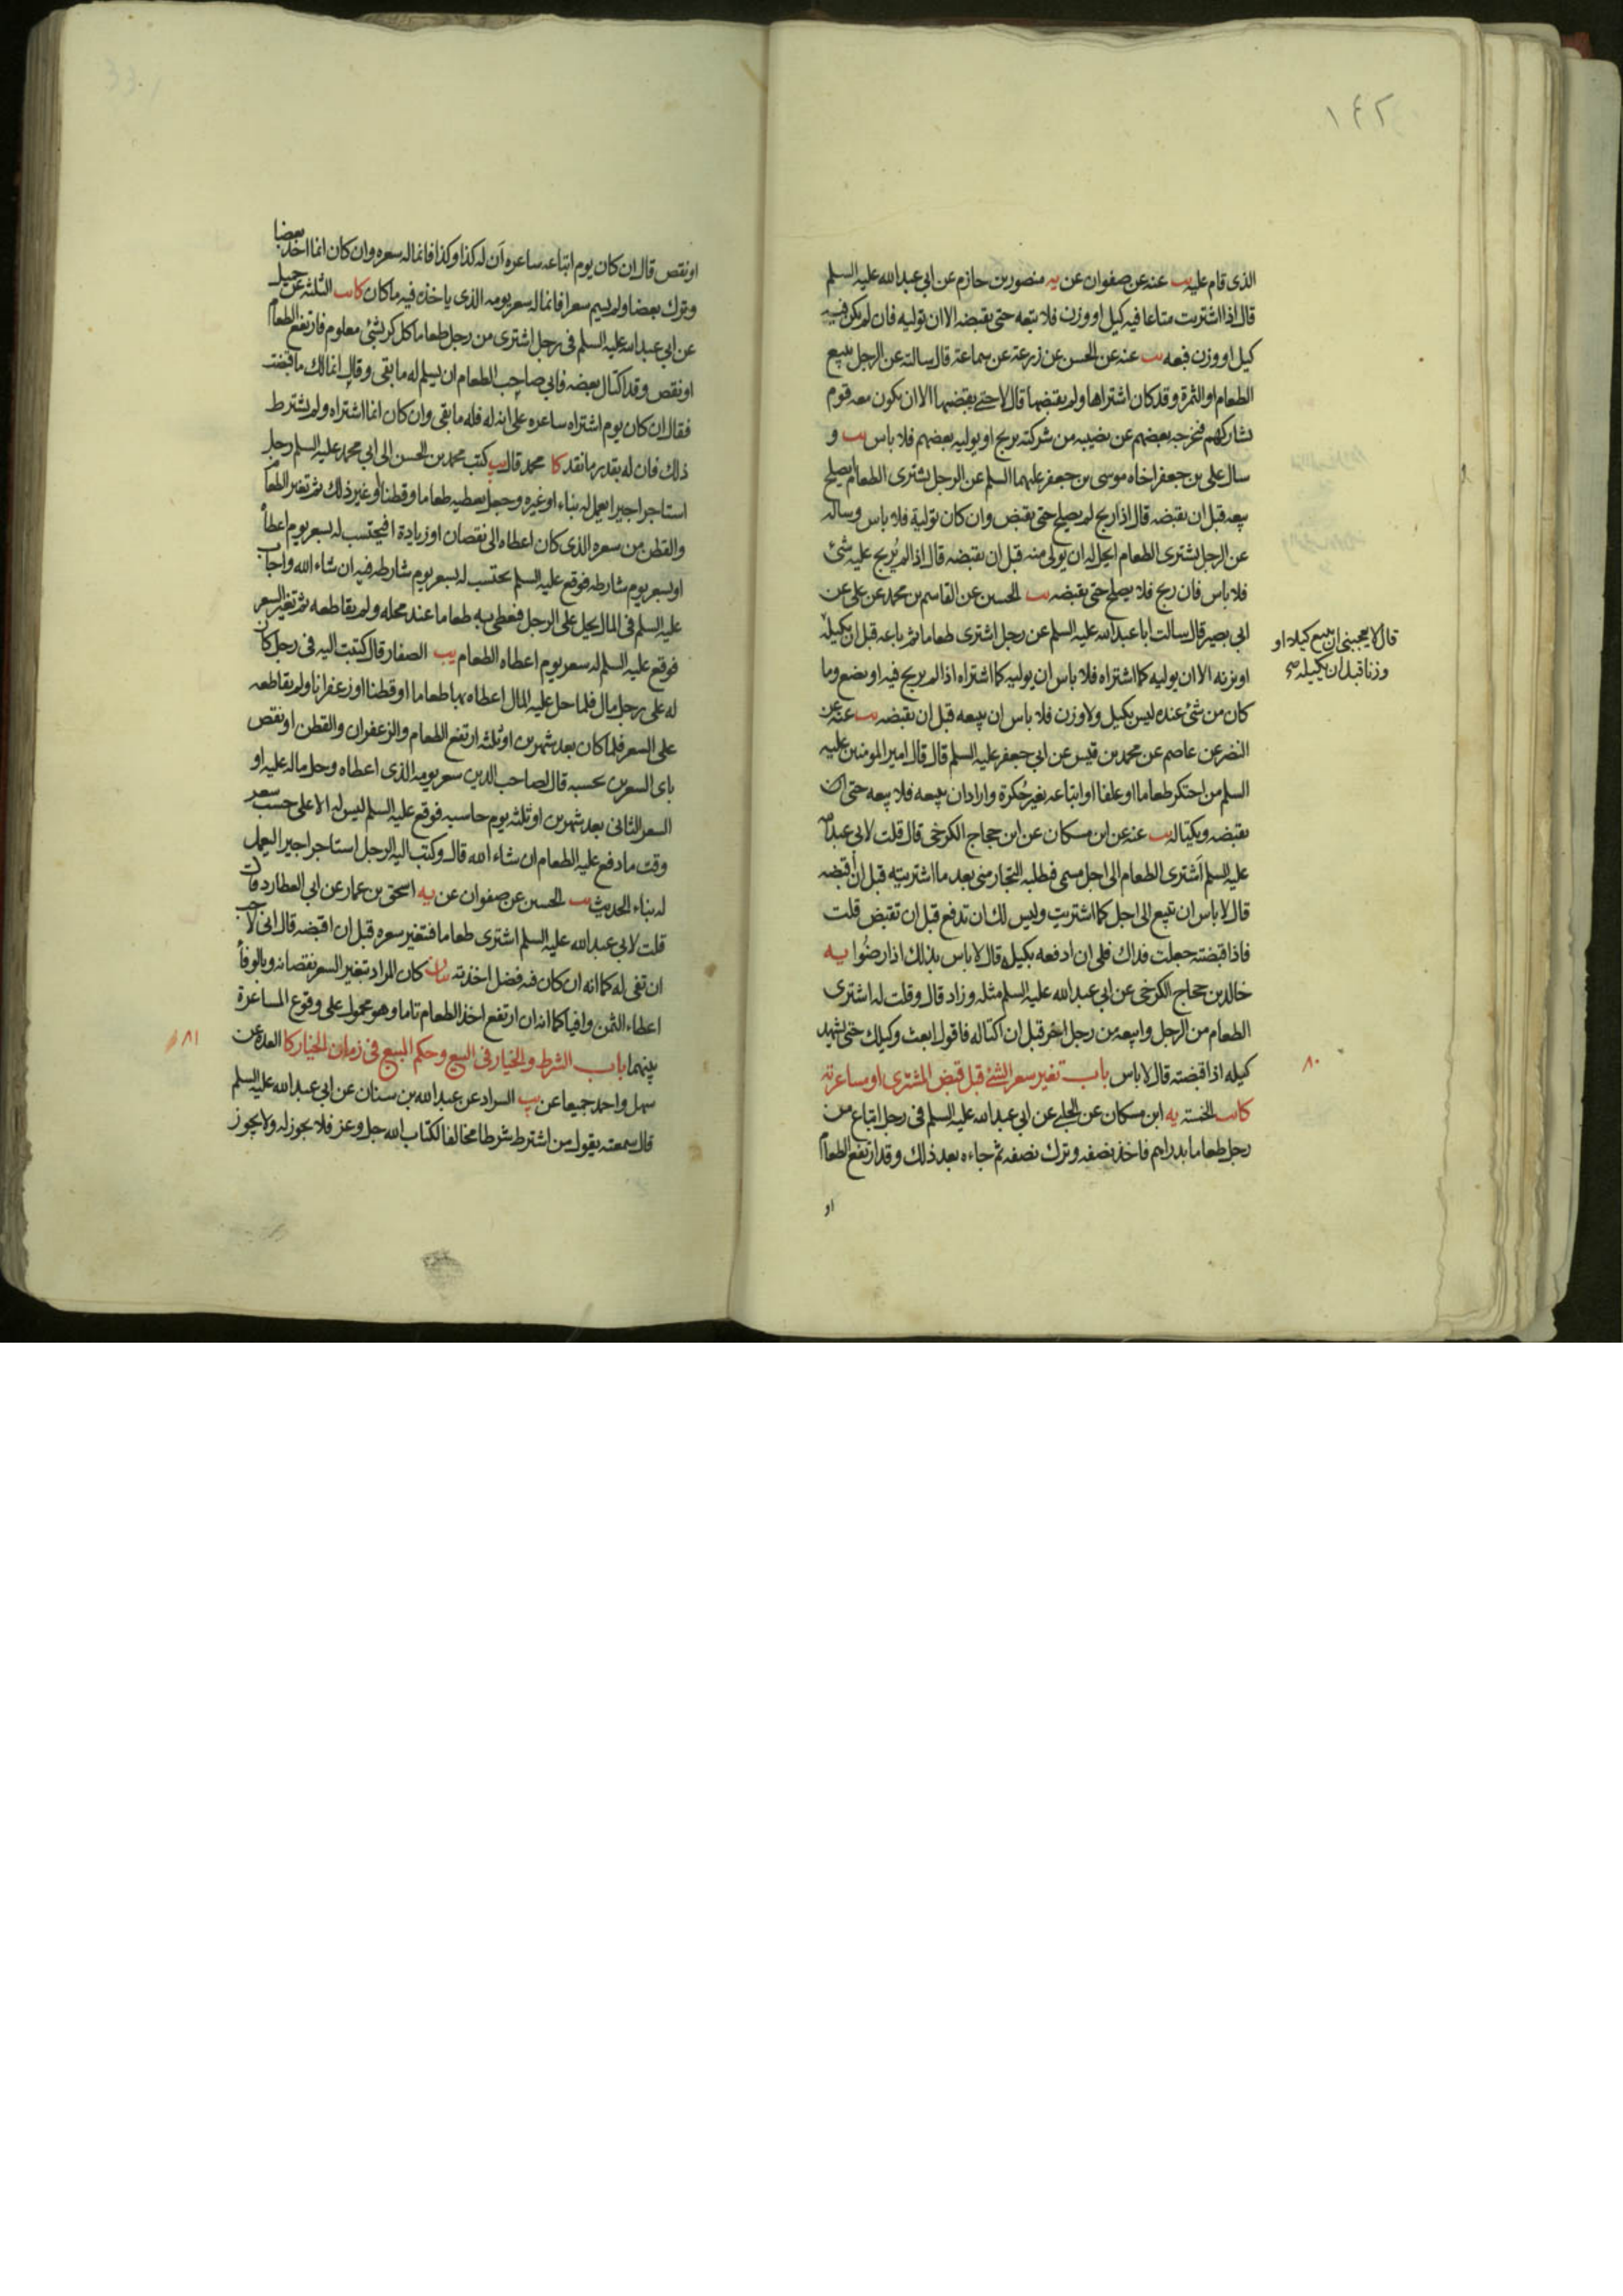 ١٤٢
الذى قام عليه يب عنه عن صفوان عن يه منصور بن حازم عن ابى عبد الله عليه السلم
قال اذا اشتريت متاعا فيه كيل او وزن فلا تبعه حتى تقبضه الا ان توليه فان لم يكن فيه
كيل او وزن فبعه يب عنه عن الحسن عن زرعة عن سماعة قال سالته عن الرجل يبيع
الطعام او الثمرة وقد كان اشتراها ولم يقبضها قال لا حتى يقبضها الا ان يكون معه قوم
يشاركهم فيخرجه بعضهم عن نصيبه من شركته بربح او يوليه بعضهم فلا باس يب و
سال على بن جعفر اخاه موسى بن جعفر عليهما السلم عن الرجل يشترى الطعام ايصلح
بيعه قبل ان يقبضه قال اذا ربح لم يصلح حتى يقبض وان كان تولية فلا باس وساله
عن الرجل يشترى الطعام ايحل له ان يولى منه قبل ان يقبضه قال اذا لم يربح عليه شئ
فلا باس فان ربح فلا يصلح حتى يقبضه يب الحسين عن القاسم بن محمد عن على عن
ابى بصير قال سالت ابا عبد الله عليه السلم عن رجل اشترى طعاما ثم باعه قبل ان يكيله
قال لا يعجبنى ان يبيع كيلا او
وزنا قبل ان يكيله صح
او يزنه الا ان يوليه كما اشتراه فلا باس ان يوليه كما اشتراه اذا لم يربح فيه او يضع وما
كان من شئ عنده ليس بكيل ولا وزن فلا باس ان يبيعه قبل ان يقبضه يب عنه عن
النضر عن عاصم عن محمد بن قيس عن ابى جعفر عليه السلم قال قال امير المومنين عليه
السلم من احتكر طعاما او علفا او ابتاعه بغير حُكرة واراد ان يبيعه فلا يبعه حتى
يقبضه ويكتاله يب عنه عن ابن مسكان عن ابن حجاج الكرخى قال قلت لابى عبد الله
عليه السلم اَشترى الطعام الى اجل مسمى فيطلبه التجار منى بعد ما اشتريته قبل ان اقبضه
قال لا باس ان تبيع الى اجل كما اشتريت وليس لك ان تدفع قبل ان تقبض قلت
فاذا قبضته جعلت فداك فلى ان ادفعه بكيله قال لا باس بذلك اذا رضُوا يه
خالد بن حجاج الكرخى عن ابى عبد الله عليه السلم مثله وزاد قال وقلت له اشترى
الطعام من الرجل وابيعه من رجل اخر قبل ان اكتاله فاقول ابعث وكيلك حتى يشهد
٨٠
كيله اذا قبضته قال لا باس باب تغير سعر الشئ قبل قبض المشترى او مساعرته
كا يب الخمسة يه ابن مسكان عن الحلبى عن ابى عبد الله عليه السلم فى رجل ابتاع من
رجل طعاما بدراهم فاخذ نصفه وترك نصفه ثم جاءه بعد ذلك وقد ارتفع الطعام
او
او نقص قال ان كان يوم ابتاعه ساعره ان له كذا وكذا فانما له سعره وان كان انما اخذ بعضا
وترك بعضا ولم يسم سعرا فانما له سعر يومه الذى ياخذه فيه ما كان كا يب الثلثة عن جميل
عن ابى عبد الله عليه السلم فى رجل اشترى من رجل طعاما كل كر بشئ معلوم فارتفع الطعام
او نقص وقد اكتال بعضه فابى صاحب الطعام ان يسلم له ما بقى وقال انما لك ما قبضت
فقال ان كان يوم اشتراه ساعره على انه له فله ما بقى وان كان انما اشتراه ولم يشترط
ذلك فان له بقدر ما نقد كا محمد قال يب كتب محمد بن الحسن الى ابى محمد عليه السلم رجل
استاجر اجيرا يعمل له بناء او غيره وجعل يعطيه طعاما وقطنا او غير ذلك ثم تغير الطعام
والقطن من سعره الذى كان اعطاه الى نقصان او زيادة ا فيحتسب له بسعر يوم اعطاه
او بسعر يوم شارطه فوقع عليه السلم يحتسب له بسعر يوم شارطه فيه ان شاء الله واجاب
عليه السلم فى المال يحل على الرجل فيعطى به طعاما عند محله ولم يقاطعه ثم تغير السعر
فوقع عليه السلم له سعر يوم اعطاه الطعام يب الصفار قال كتبت اليه فى رجل كان
له على رجل مال فلما حل عليه المال اعطاه بها طعاما او قطنا او زعفرانا ولم يقاطعه
على السعر فلما كان بعد شهرين او ثلثة ارتفع الطعام والزعفران والقطن او نقص
باى السعرين يحسبه قال لصاحب الدين سعر يومه الذى اعطاه وحل ماله عليه او
السعر الثانى بعد شهرين او ثلثة يوم حاسبه فوقع عليه السلم ليس له الا على حسب سعر
وقت ما دفع عليه الطعام ان شاء الله قال وكتب اليه الرجل استاجر اجيرا ليعمل
له بناء الحديث يب الحسين عن صفوان عن يه اسحق بن عمار عن ابى العطارد قال
قلت لابى عبد الله عليه السلم اشترى طعاما فتغير سعره قبل ان اقبضه قال انى لاحب
ان تفى له كما انه ان كان فيه فضل اخذته بيان كان المراد بتغير السعر نقصانه وبالوفاء
اعطاء الثمن وافيا كما انه ان ارتفع اخذ الطعام تاما وهو محمول على وقوع المساعرة
٨١
بينهما باب الشرط والخيار فى البيع وحكم المبيع فى زمان الخيار كا العدة عن
سهل واحمد جميعا عن يب السراد عن عبد الله بن سنان عن ابى عبد الله عليه السلم
قال سمعته يقول من اشترط شرطا مخالفا لكتاب الله جل وعز فلا يجوز له ولا يجوز